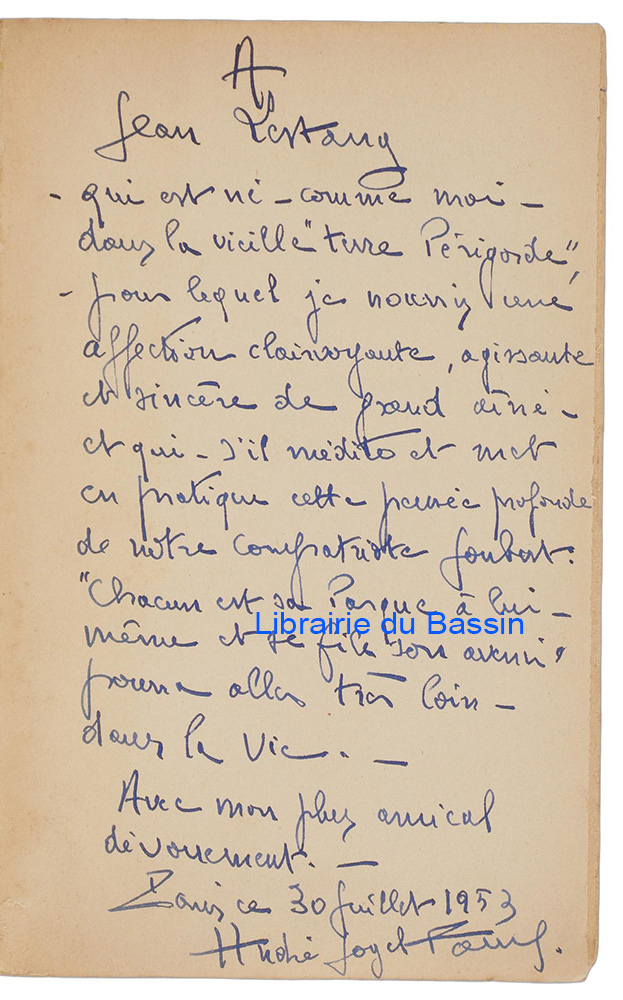 A
Jean Lestang
- qui est né - comme moi -
dans la vieille "terre Périgorde",
- pour lequel je nourris une
affection clairvoyante, agissante
et sincère de grand aîné -
et qui - s'il médite et met
en pratique cette pensée profonde
de notre compatriote Joubert :
"Chacun est sa Parque à lui-
même et se file son avenir"
pourra aller très loin -
dans la Vie. -
Avec mon plus amical
dévouement. -
Paris ce 30 Juillet 1953
André
Librairie du Bassin